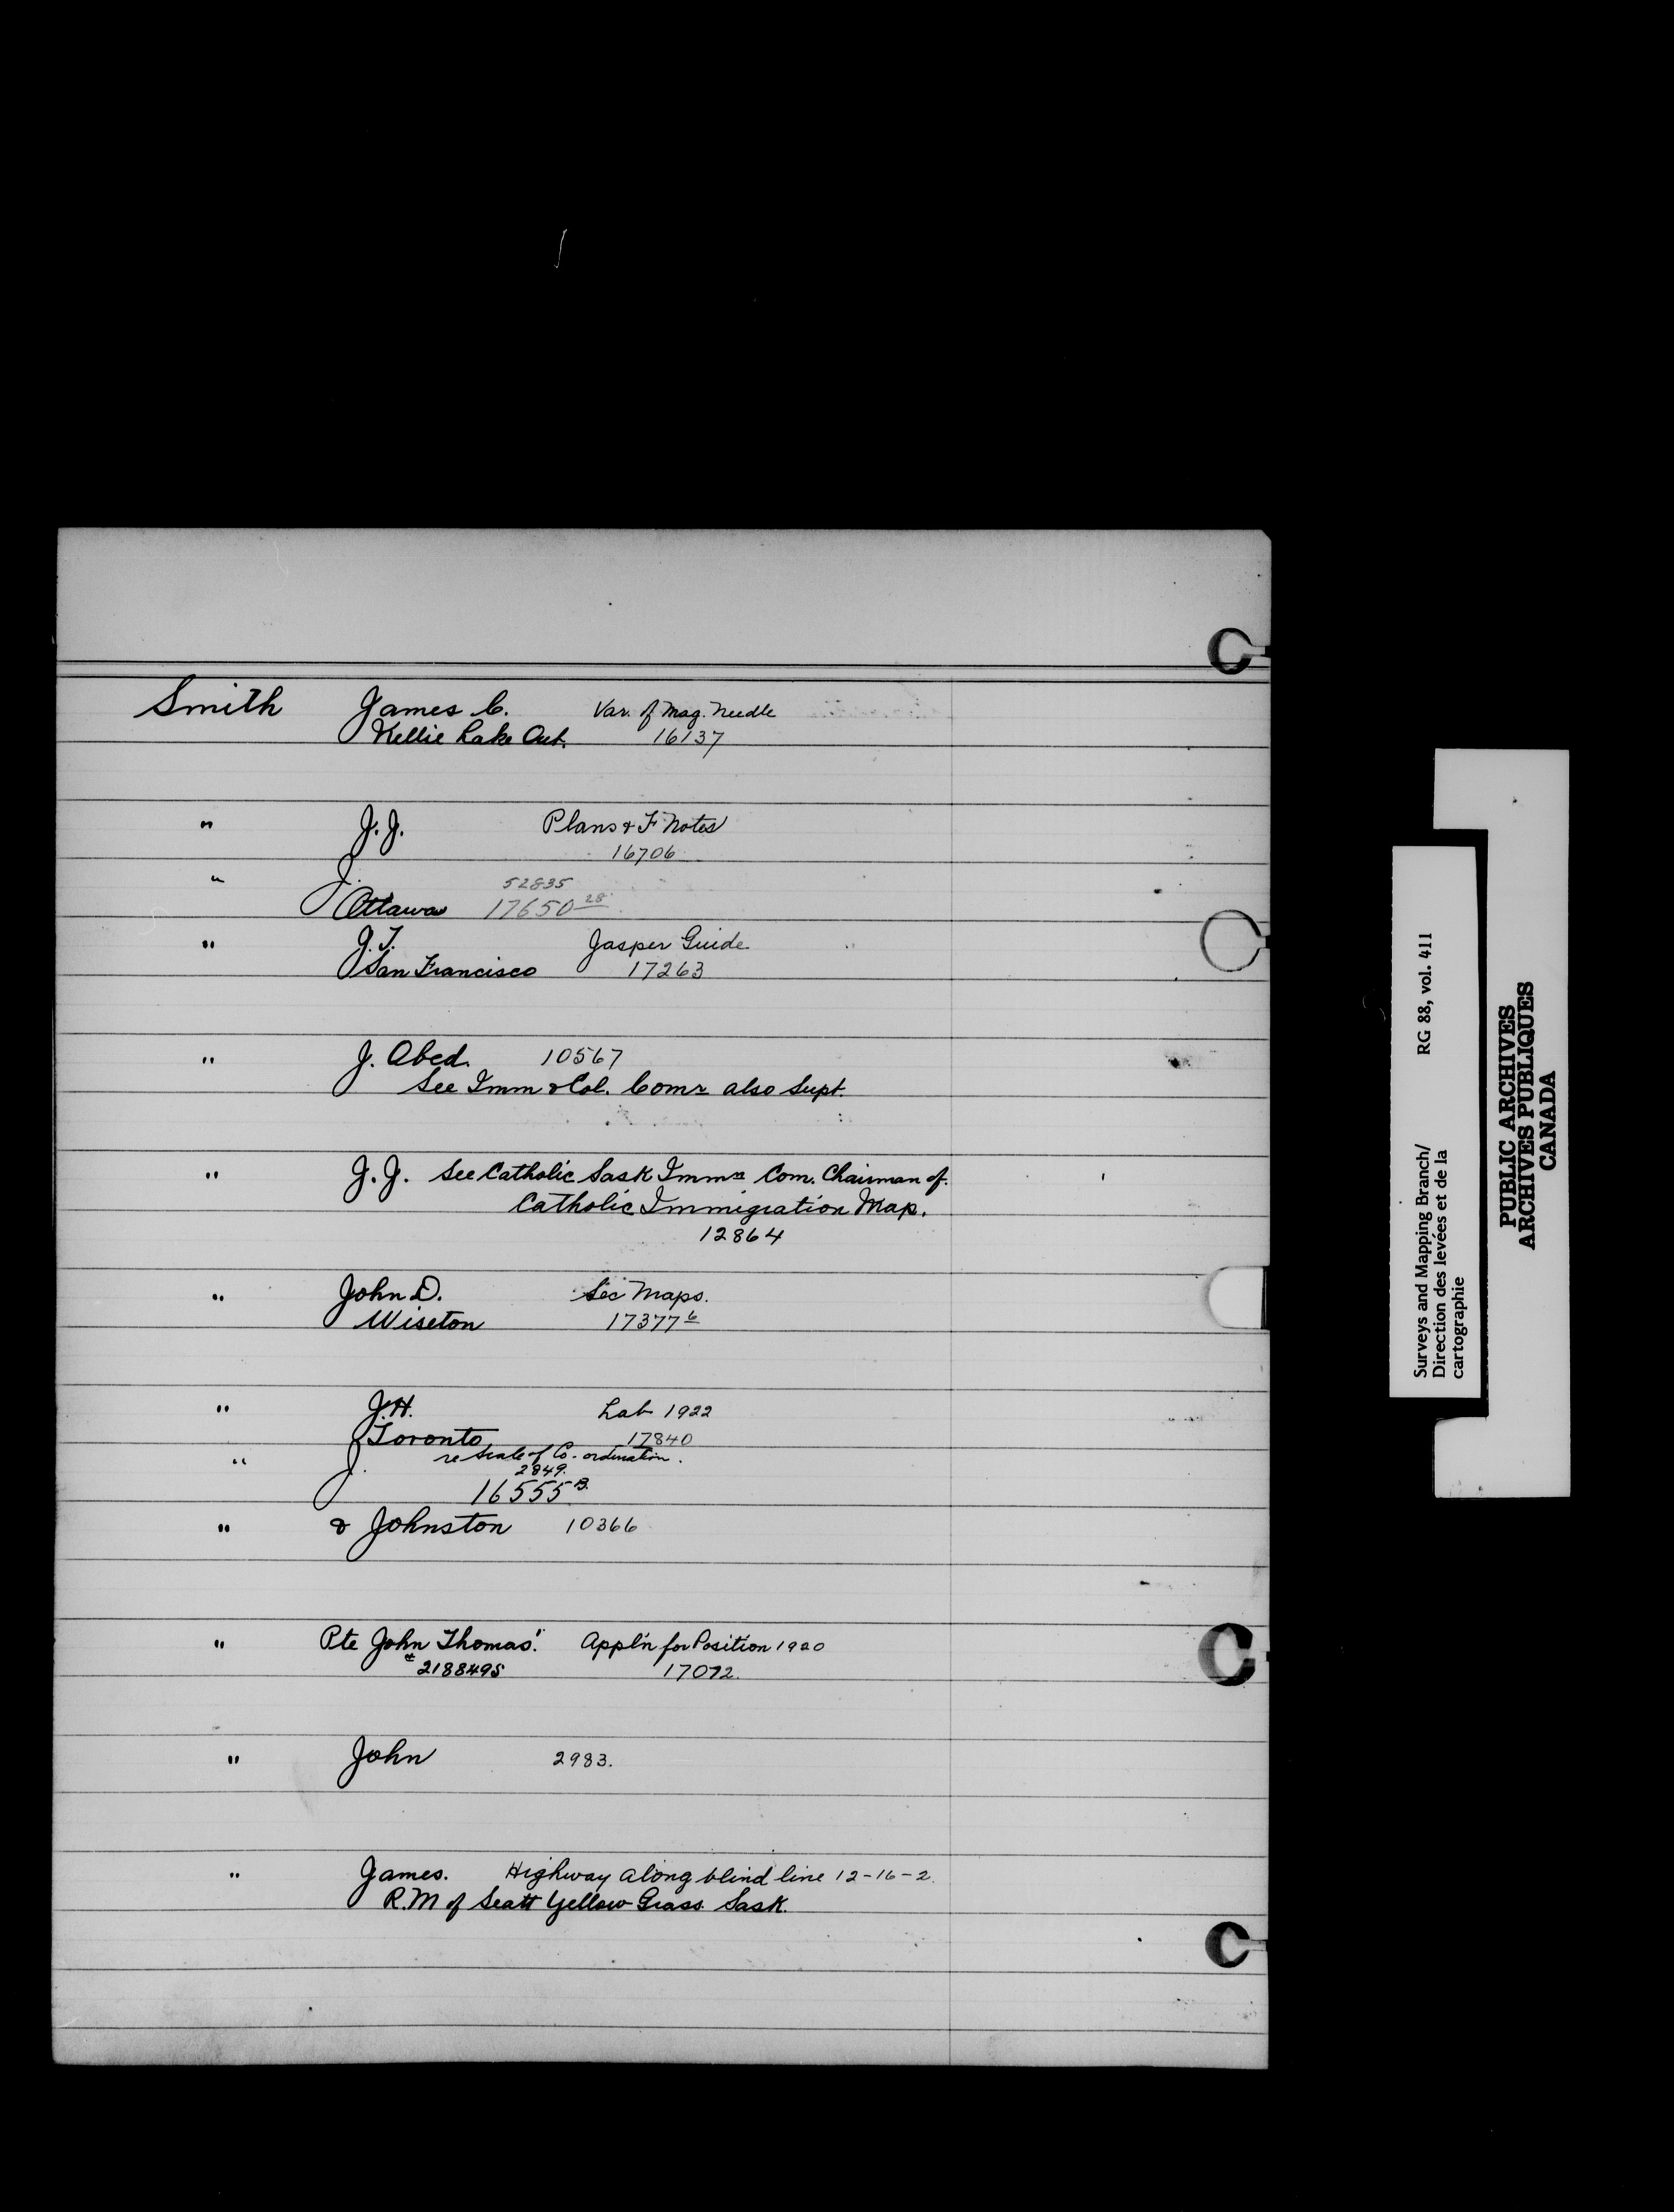 Smith James C. Var. of Mag. Needle
Kellie Lake Ont. 16137
" J. J. Plans & F Notes
16706
" J. 52835
Ottawa 17650 28
" J. T. Jasper Guide
San Francisco 17263
" J. Obed. 10567
See Imm & Col. Comr also Supt.
" J. J. See Catholic Sask Immn Com. Chairman of.
Catholic Immigration Map.
12864
" John D. Sec Maps.
Wiseton 17377 6
" J. H. Lab 1922
Toronto 17840
" J. re Scale of Co-ordination.
2849.
16555 B.
" & Johnston 10366
" Pte John Thomas. Appl'n for Position 1920
# 2188495 17072.
" John 2983.
" James. Highway along blind line 12-16-2.
R. M of Scott Yellow Grass. Sask.
Surveys and Mapping Branch/ RG 88, vol. 411
Direction des levées et de la
cartographie
PUBLIC ARCHIVES
ARCHIVES PUBLIQUES
CANADA